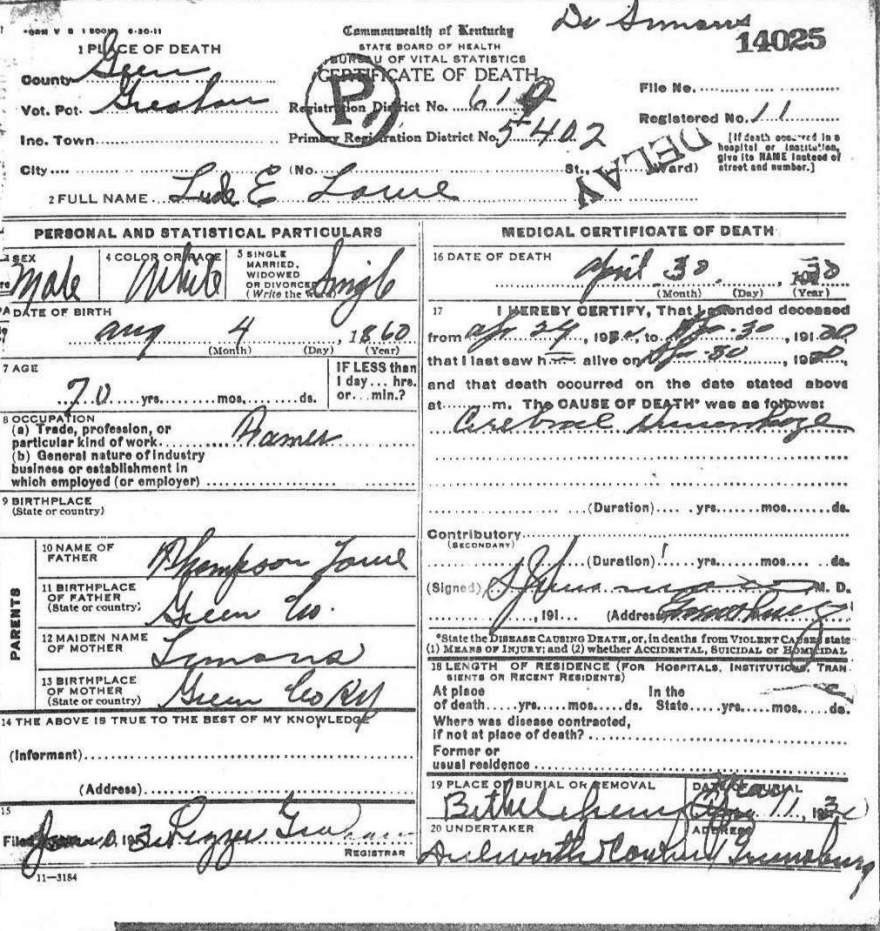 FORM V S 1 500M 6-30-11
Commonwealth of Kentucky
Dr Simons
14025
STATE BOARD OF HEALTH
BUREAU OF VITAL STATISTICS
CERTIFICATE OF DEATH
1 PLACE OF DEATH
County Green
Vot. Pct. Gresham
Inc. Town
City
(No. St., Ward)
Registration District No. 610
Primary Registration District No. 5402
File No.
Registered No. 11
[If death occurred in a hospital or institution, give its NAME instead of street and number.]
P
DELAY
2 FULL NAME Lude E Lowe
PERSONAL AND STATISTICAL PARTICULARS
3 SEX Male
4 COLOR OR RACE White
5 SINGLE MARRIED, WIDOWED OR DIVORCED (Write the word) Single
DATE OF BIRTH
Aug 4, 1860
(Month) (Day) (Year)
7 AGE
70 yrs. mos. ds.
IF LESS than 1 day ... hrs. or ... min.?
8 OCCUPATION
(a) Trade, profession, or
particular kind of work Farmer
(b) General nature of industry
business or establishment in
which employed (or employer)
9 BIRTHPLACE
(State or country)
PARENTS
10 NAME OF FATHER Thompson Lowe
11 BIRTHPLACE OF FATHER (State or country) Green Co.
12 MAIDEN NAME OF MOTHER Simons
13 BIRTHPLACE OF MOTHER (State or country) Green Co Ky
14 THE ABOVE IS TRUE TO THE BEST OF MY KNOWLEDGE
(Informant)
(Address)
15
Filed 193
Graham
REGISTRAR
11—3184
MEDICAL CERTIFICATE OF DEATH
16 DATE OF DEATH
April 30, 1930
(Month) (Day) (Year)
17 I HEREBY CERTIFY, That I attended deceased
from Apr 29, 19 to Apr 30, 191
that I last saw h alive on Apr 30, 19
and that death occurred on the date stated above
at m. The CAUSE OF DEATH* was as follows:
Cerebral Hemorrhage
(Duration) yrs. mos. ds.
Contributory
(SECONDARY)
(Duration) yrs. mos. ds.
(Signed) M. D.
, 191 (Address) Greensburg
*State the DISEASE CAUSING DEATH, or, in deaths from VIOLENT CAUSES, state
(1) MEANS OF INJURY; and (2) whether ACCIDENTAL, SUICIDAL or HOMICIDAL
18 LENGTH OF RESIDENCE (FOR HOSPITALS, INSTITUTIONS, TRANSIENTS OR RECENT RESIDENTS)
At place of death yrs. mos. ds. In the State yrs. mos. ds.
Where was disease contracted,
if not at place of death?
Former or
usual residence
19 PLACE OF BURIAL OR REMOVAL
Bethlehem
DATE OF BURIAL
May 1, 193
20 UNDERTAKER
ADDRESS
Greensburg